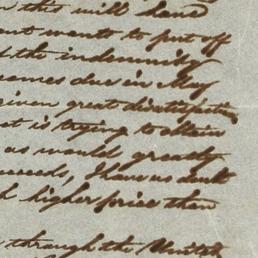 this will have
wants to put off
the indemnity
comes due in May
given great dissatisfaction
is trying to obtain
as would greatly
I have no doubt
higher price than
through the United